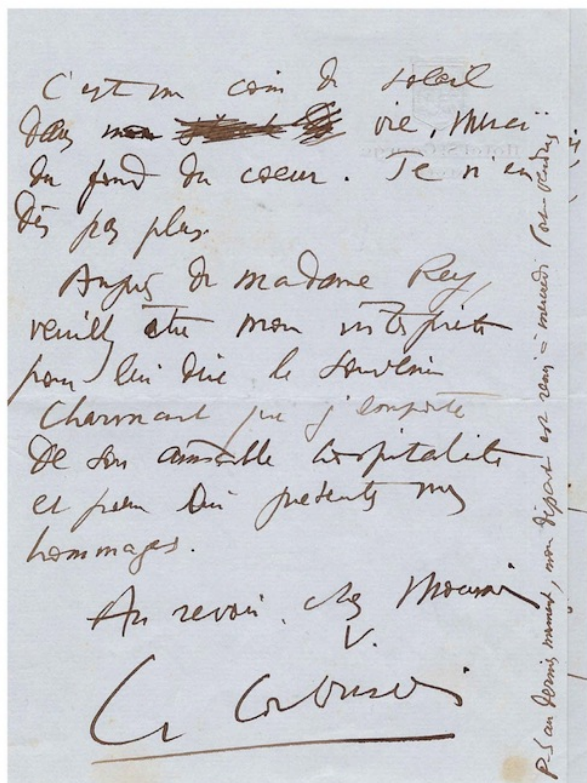 C'est un coin de soleil
dans vie. Merci
du fond du coeur. Je n'en
dis pas plus.
Auprès de madame Rey,
veuillez être mon interprète
pour lui dire le souvenir
charmant que j'emporte
de son aimable hospitalité
et pour lui présenter mes
hommages.
Au revoir, cher Monsieur
V.
Le Corbusier
P-S au dernier moment, mon départ est remis à mercredi